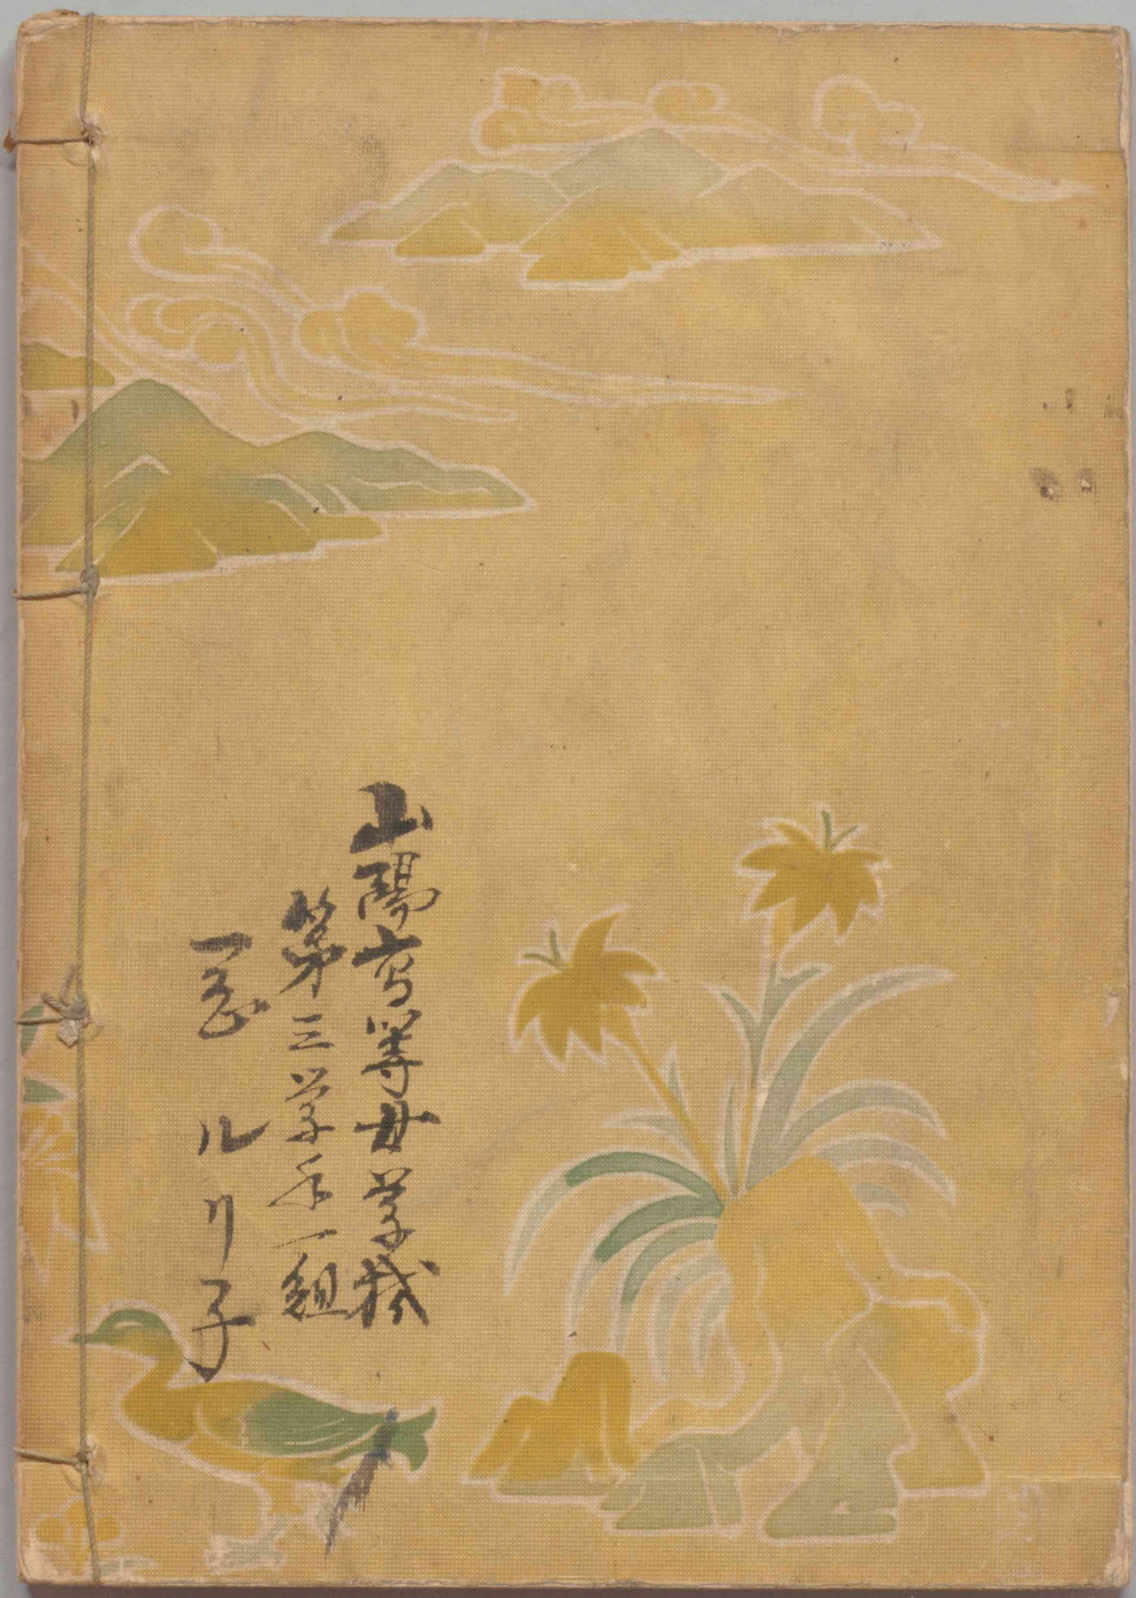 山陽高等女学校
第三学年一組
一色 ルリ子